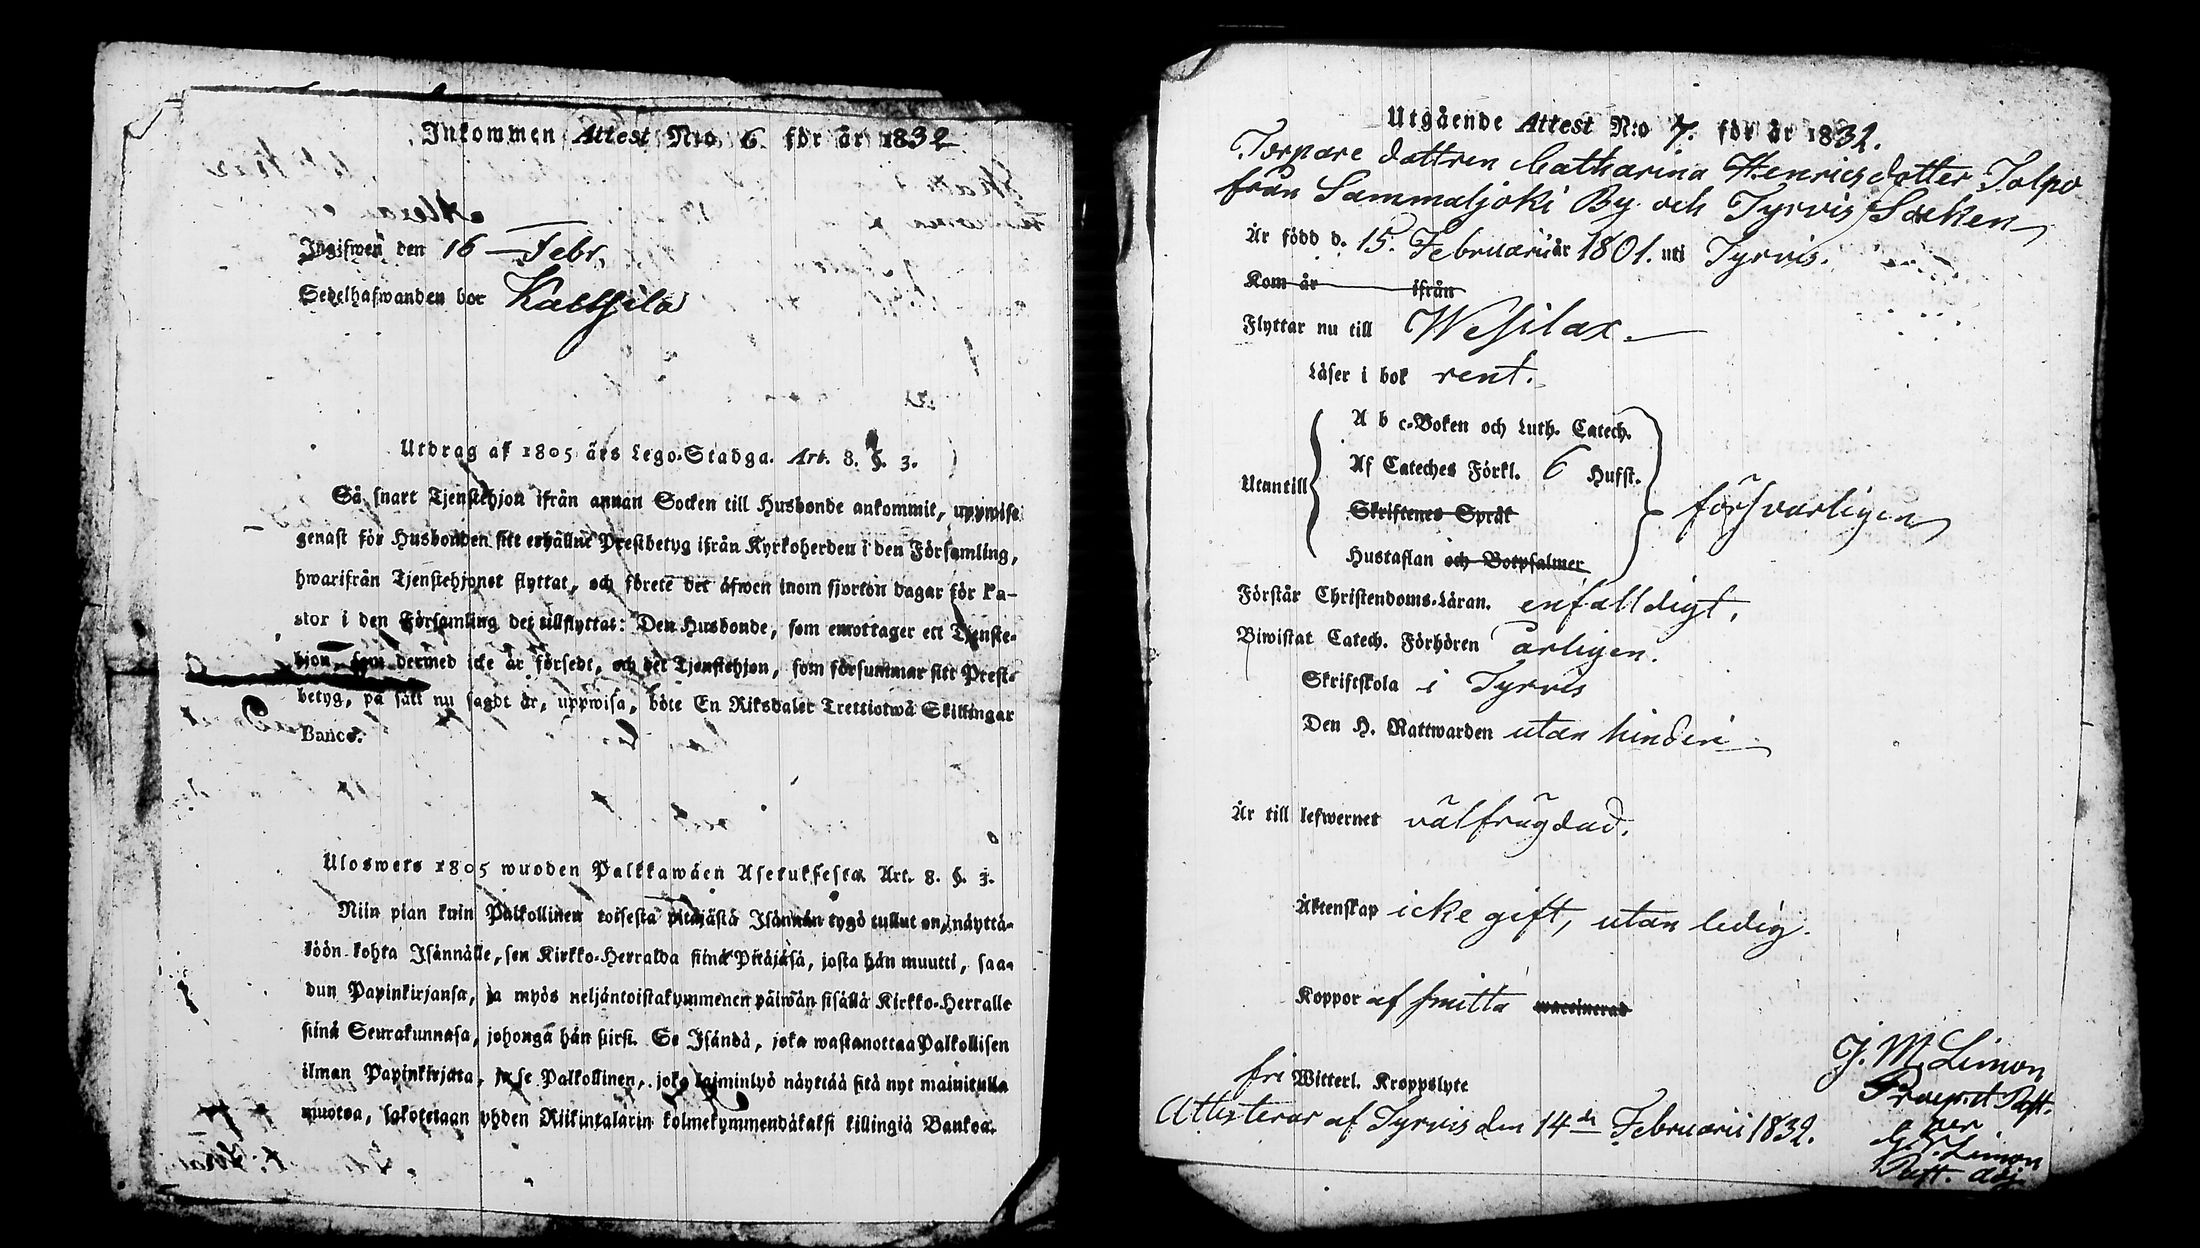 Inkommen Attest N:o 6 för år 1832
Ingifwen den 16 Febr.
Sedelhafwanden bor
Utdrag af 1805 års Lego-Stadga. Art. 8. §. 3.
Så snart Tjenstehjon ifrån annan Socken till Husbonde ankommit, uppwise
genast för Husbonden sitt erhållne Prestbetyg ifrån Kyrkoherden i den Församling,
hwarifrån Tjenstehjonet flyttat, och förete det äfwen inom fjorton dagar för Pa-
stor i den Församling det tillflyttat: Den Husbonde, som emottager ett Tjenste-
hjon, som dermed icke är försedt, och det Tjenstehjon, som försummar sitt Prest-
betyg, på sätt nu sagdt är, uppwisa, böte En Riksdaler Trettiotwå Skillingar
Banco.
Uloswето 1805 wuoden Palkkawäen Asetuksesta. Art. 8. §. 3.
Niin pian kuin Palkollinen toisesta pitäjästä Isännän tygö tullut on, näyttä-
köön kohta Isännälle, sen Kirkko-Herralda siinä Pitäjäsä, josta hän muutti, saa-
dun Papinkirjansa, ja myös neljäntoistakymmenen päiwän sisällä Kirkko-Herralle
siinä Seurakunnasa, johonga hän siirsi. Se Isändä, joka wastanottaa Palkollisen
ilman Papinkirjata, ja se Palkollinen, joka laiminlyö näyttää sitä nyt mainitulla
muotoa, sakotetaan yhden Riikintalarin kolmekymmendäkaksi killingiä Bankoa.
Utgående Attest N:o 7. för år 1832.
Torpare dottren Catharina Henricsdotter Tolpo
från Sammaljoki By och Tyrvis Socken
Är född d. 15. Februarii år 1801. uti Tyrvis.
Kom år ifrån
Flyttar nu till Wesilax.
Läser i bok rent.
A b c-Boken och Luth. Catech.
Utantill Af Cateches Förkl. 6 Hufst. försvarligen
Skriftenes Språk
Hustaflan och Botpsalmer
Förstår Christendoms-Läran. enfalldigt.
Biwistat Catech. Förhören årligen.
Skriftskola i Tyrvis
Den H. Nattwarden utan hinder
Är till lefwernet välfrägdad.
Äktenskap icke gift, utan ledig.
Koppor af smitta waccinerad
fri Witterl. Kroppslyte
Attesterar af Tyrvis den 14de Februarii 1832.
J. M. Limon
Praepost Past.
per
Limon
Past. adj.